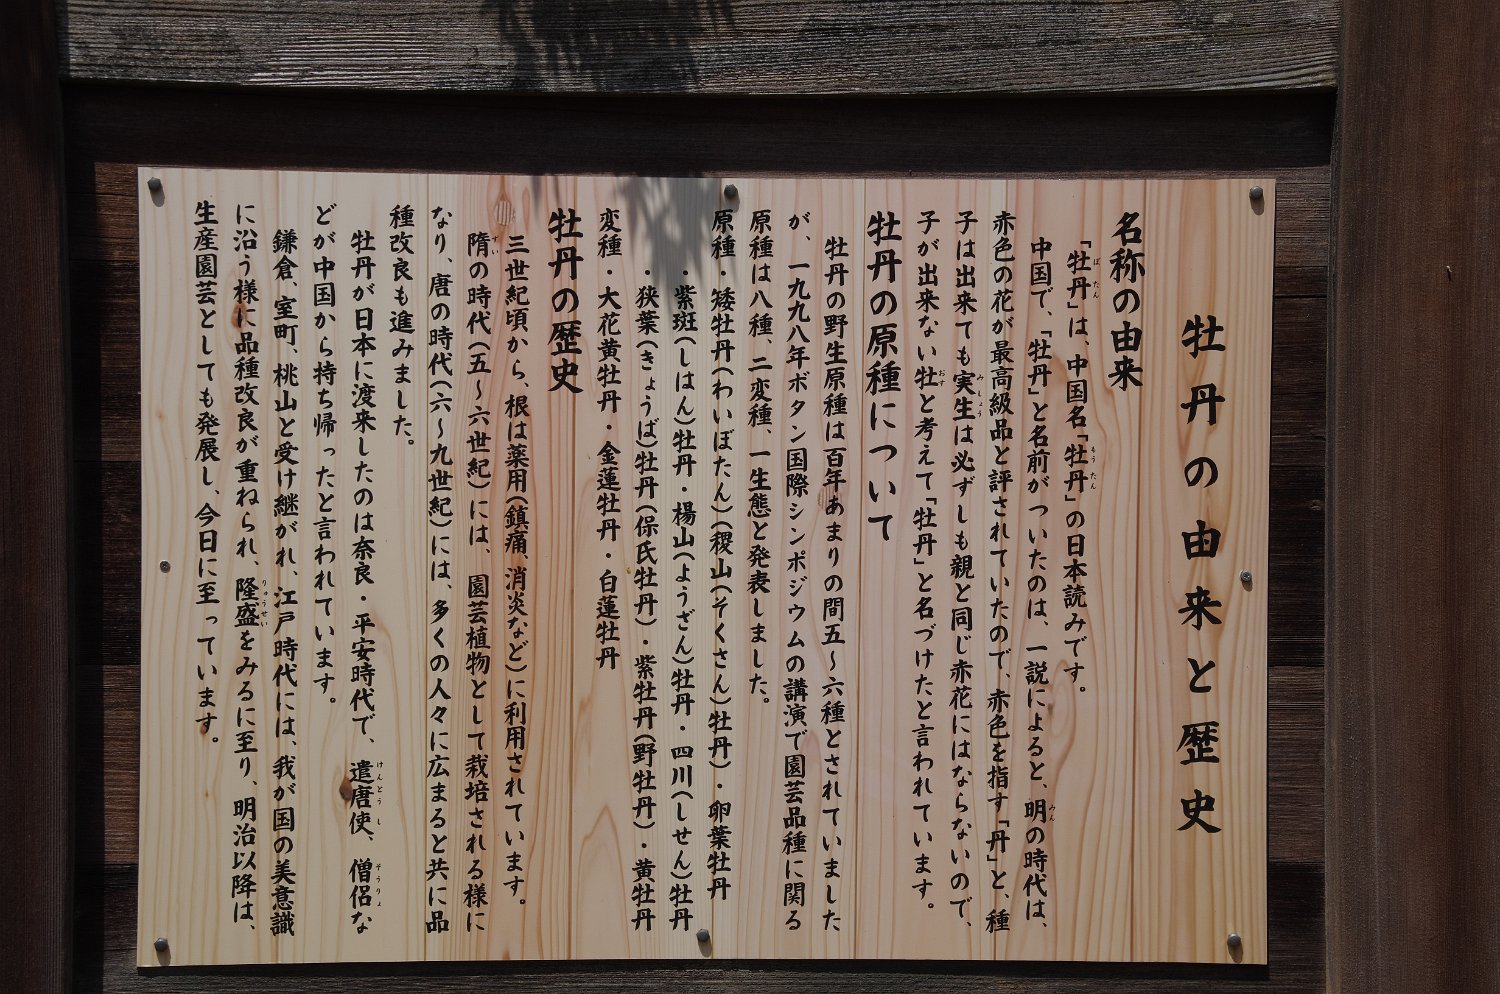 牡丹の由来と歴史
名称の由来
「牡丹」は、中国名「牡丹」の日本読みです。
中国で、「牡丹」と名前がついたのは、一説によると、明の時代は、
赤色の花が最高級品と評されていたので、赤色を指す「丹」と、種
子は出来ても実生は必ずしも親と同じ赤花にはならないので、
子が出来ない牡と考えて「牡丹」と名づけたと言われています。
牡丹の原種について
牡丹の野生原種は百年あまりの間五～六種とされていました
が、一九九八年ボタン国際シンポジウムの講演で園芸品種に関る
原種は八種、二変種、一生態と発表しました。
原種・矮牡丹(わいぼたん)(稷山(そくさん)牡丹)・卵葉牡丹
・紫斑(しはん)牡丹・楊山(ようざん)牡丹・四川(しせん)牡丹
・狭葉(きょうば)牡丹(保氏牡丹)・紫牡丹(野牡丹)・黄牡丹
変種・大花黄牡丹・金蓮牡丹・白蓮牡丹
牡丹の歴史
三世紀頃から、根は薬用(鎮痛、消炎など)に利用されています。
隋の時代(五～六世紀)には、園芸植物として栽培される様に
なり、唐の時代(六～九世紀)には、多くの人々に広まると共に品
種改良も進みました。
牡丹が日本に渡来したのは奈良・平安時代で、遣唐使、僧侶な
どが中国から持ち帰ったと言われています。
鎌倉、室町、桃山と受け継がれ、江戸時代には、我が国の美意識
に沿う様に品種改良が重ねられ、隆盛をみるに至り、明治以降は、
生産園芸としても発展し、今日に至っています。